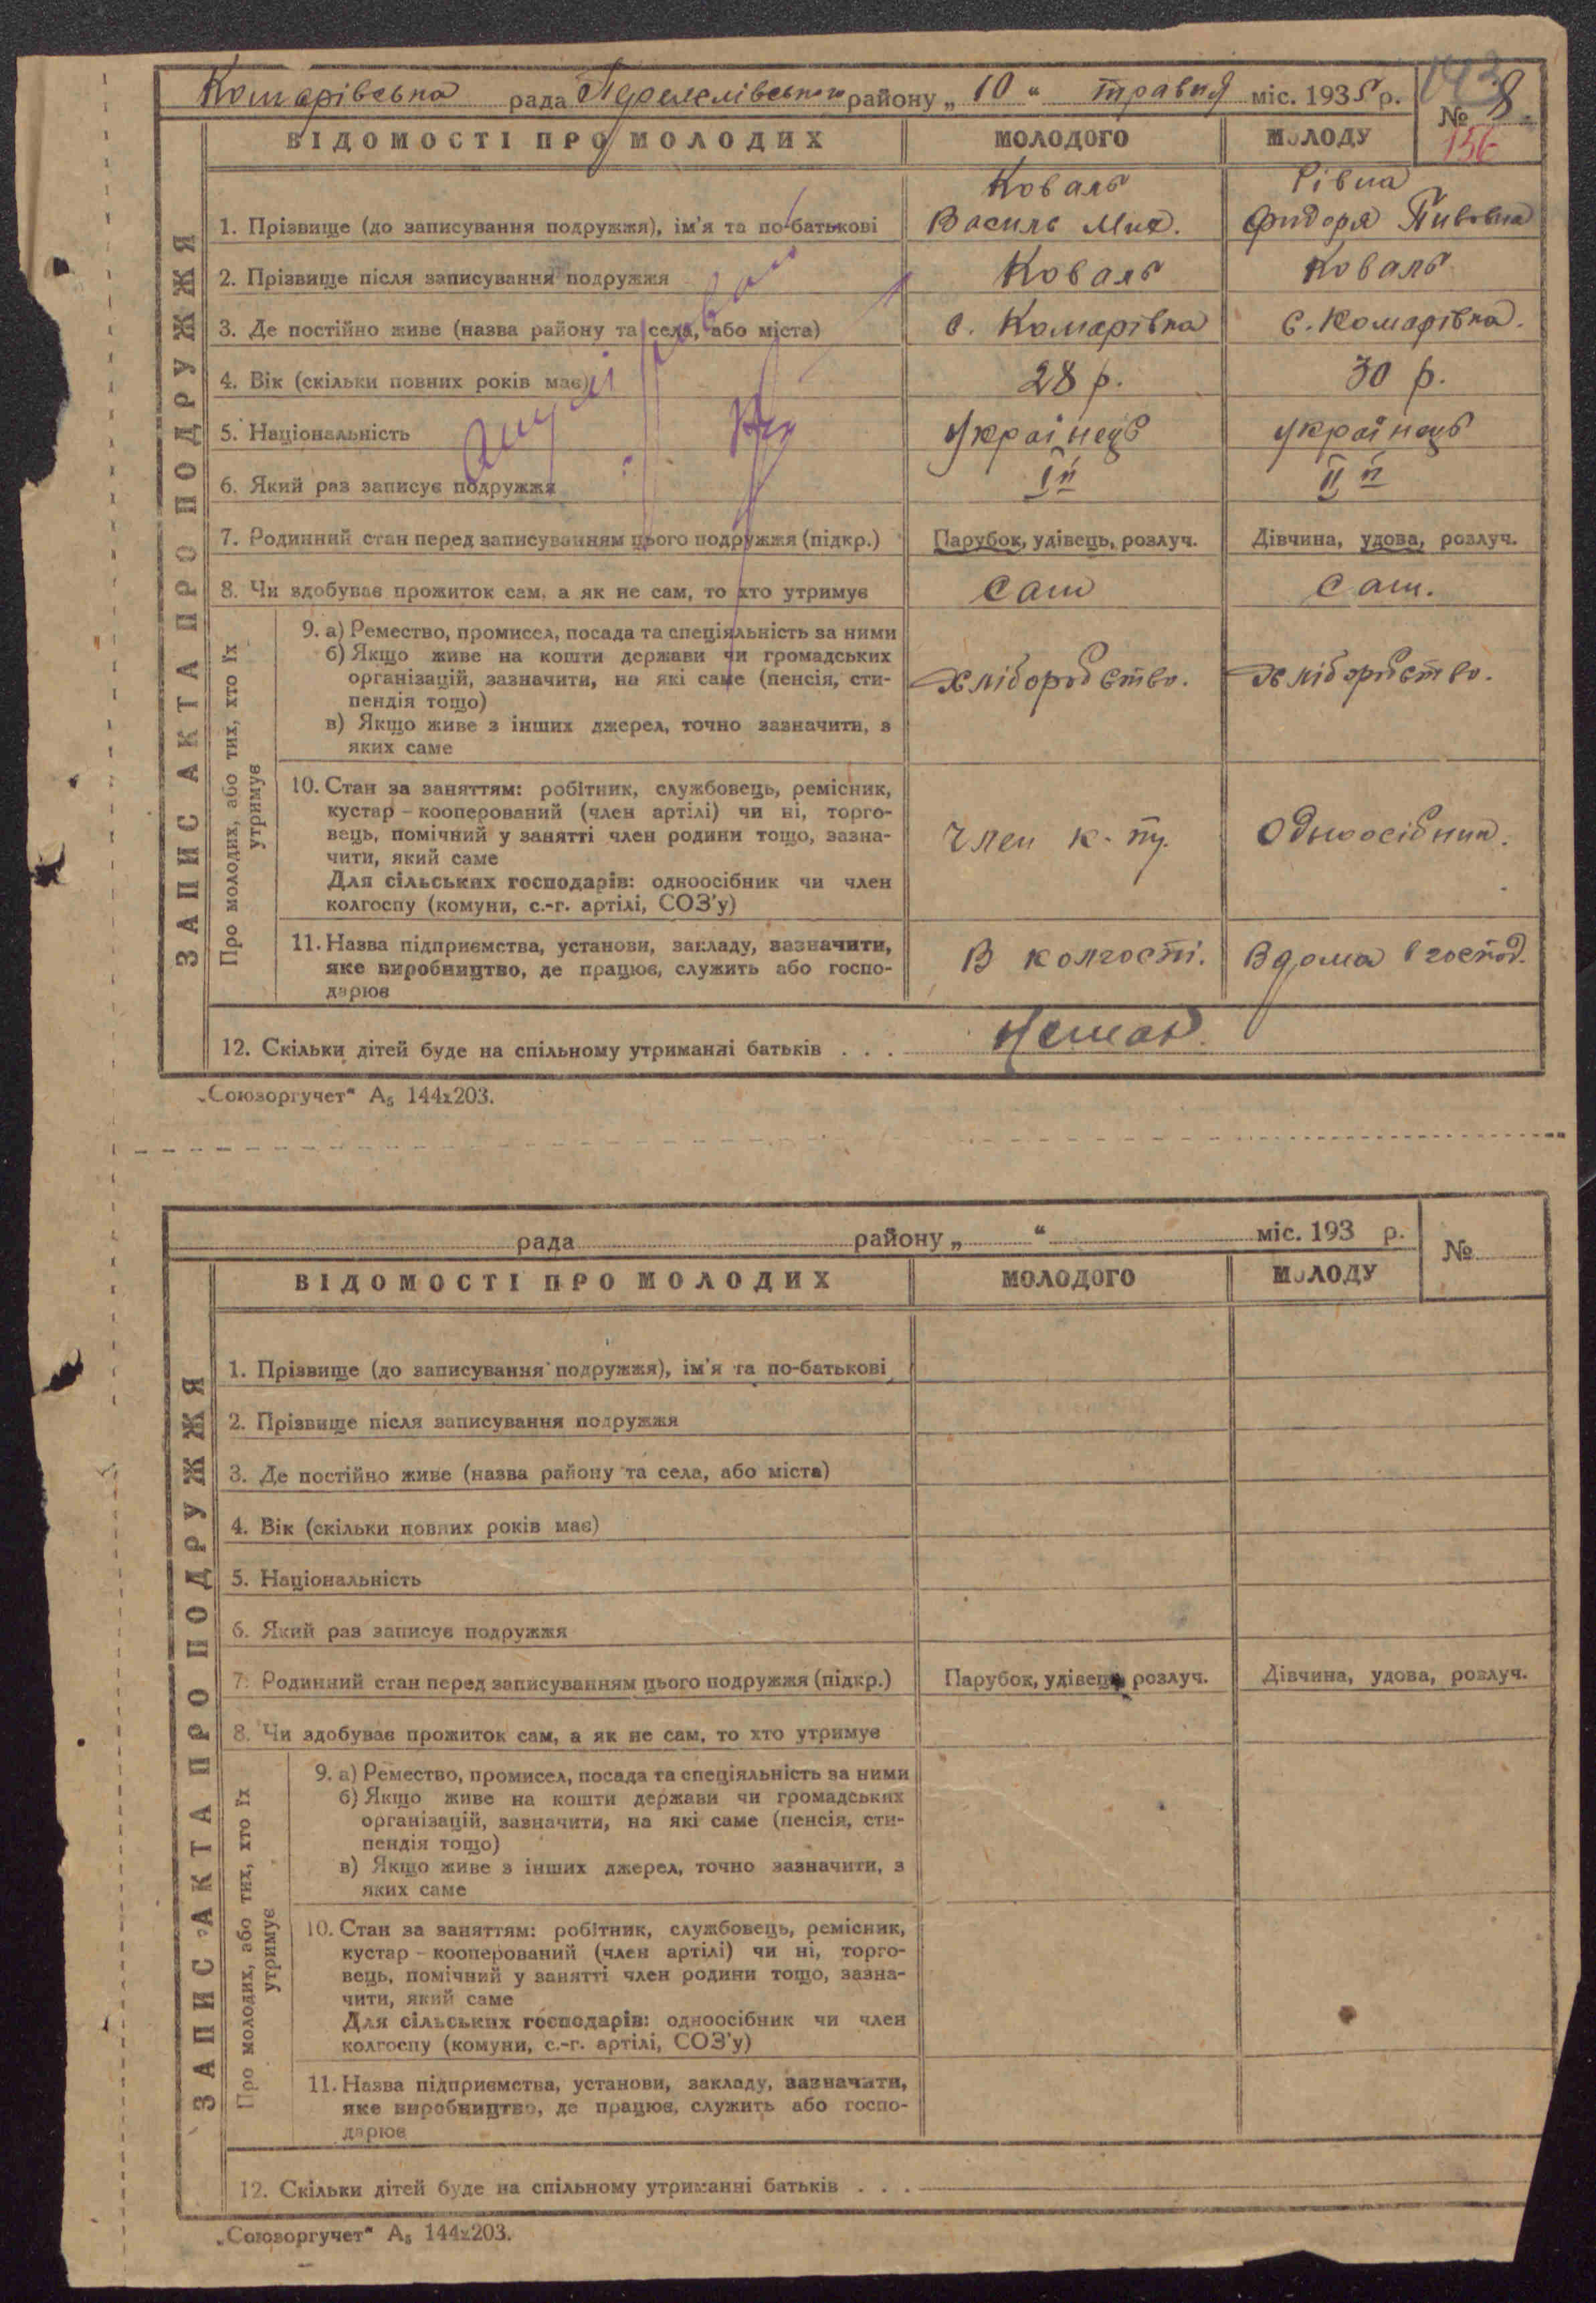 Комарівська рада района „ 10 “ травня міс. 1935 р.
№ 8
156
ВІДОМОСТІ ПРО МОЛОДИХ МОЛОДОГО МОЛОДУ
ЗАПИС АКТА ПРО ПОДРУЖЖЯ
Коваль Рівна
1. Прізвище (до записування подружжя), ім'я та по-батькові Василь Мих. Фидоря
2. Прізвище після записування подружжя Коваль Коваль
3. Де постійно живе (назва району та села, або міста) с. Комарівка с. Комарівка.
4. Вік (скільки повних років має) 28 р. 30 р.
5. Національність Українець українець
6. Який раз записує подружжя І й ІІ й
7. Родинний стан перед записуванням цього подружжя (підкр.) Парубок, удівець, розлуч. Дівчина, удова, розлуч.
8. Чи здобуває прожиток сам, а як не сам, то хто утримує сам сам.
Про молодих, або тих, хто їх
утримує
9. а) Ремество, промисел, посада та спеціяльність за ними
б) Якщо живе на кошти держави чи громадських
організацій, зазначити, на які саме (пенсія, сти-
пендія тощо)
хліборобство. хліборобство.
в) Якщо живе з інших джерел, точно зазначити, з
яких саме
10. Стан за заняттям: робітник, службовець, ремісник,
кустар – кооперований (член артілі) чи ні, торго-
вець, помічний у занятті член родини тощо, зазна-
чити, який саме
член к-пу. Одноосібник.
Для сільських господарів: одноосібник чи член
колгоспу (комуни, с.-г. артілі, СОЗ'у)
11. Назва підприємства, установи, закладу, зазначити,
яке виробництво, де працює, служить або госпо-
дарює
В колгоспі. Вдома в господ.
12. Скільки дітей буде на спільному утриманні батьків . . . Немає.
„Союзоргучет“ А₅ 144х203.
рада району „ “ міс. 193 р.
№
ВІДОМОСТІ ПРО МОЛОДИХ МОЛОДОГО МОЛОДУ
ЗАПИС АКТА ПРО ПОДРУЖЖЯ
1. Прізвище (до записування подружжя), ім'я та по-батькові
2. Прізвище після записування подружжя
3. Де постійно живе (назва району та села, або міста)
4. Вік (скільки повних років має)
5. Національність
6. Який раз записує подружжя
7. Родинний стан перед записуванням цього подружжя (підкр.) Парубок, удівець, розлуч. Дівчина, удова, розлуч.
8. Чи здобуває прожиток сам, а як не сам, то хто утримує
Про молодих, або тих, хто їх
утримує
9. а) Ремество, промисел, посада та спеціяльність за ними
б) Якщо живе на кошти держави чи громадських
організацій, зазначити, на які саме (пенсія, сти-
пендія тощо)
в) Якщо живе з інших джерел, точно зазначити, з
яких саме
10. Стан за заняттям: робітник, службовець, ремісник,
кустар – кооперований (член артілі) чи ні, торго-
вець, помічний у занятті член родини тощо, зазна-
чити, який саме
Для сільських господарів: одноосібник чи член
колгоспу (комуни, с.-г. артілі, СОЗ'у)
11. Назва підприємства, установи, закладу, зазначити,
яке виробництво, де працює, служить або госпо-
дарює
12. Скільки дітей буде на спільному утриманні батьків . . .
„Союзоргучет“ А₅ 144х203.